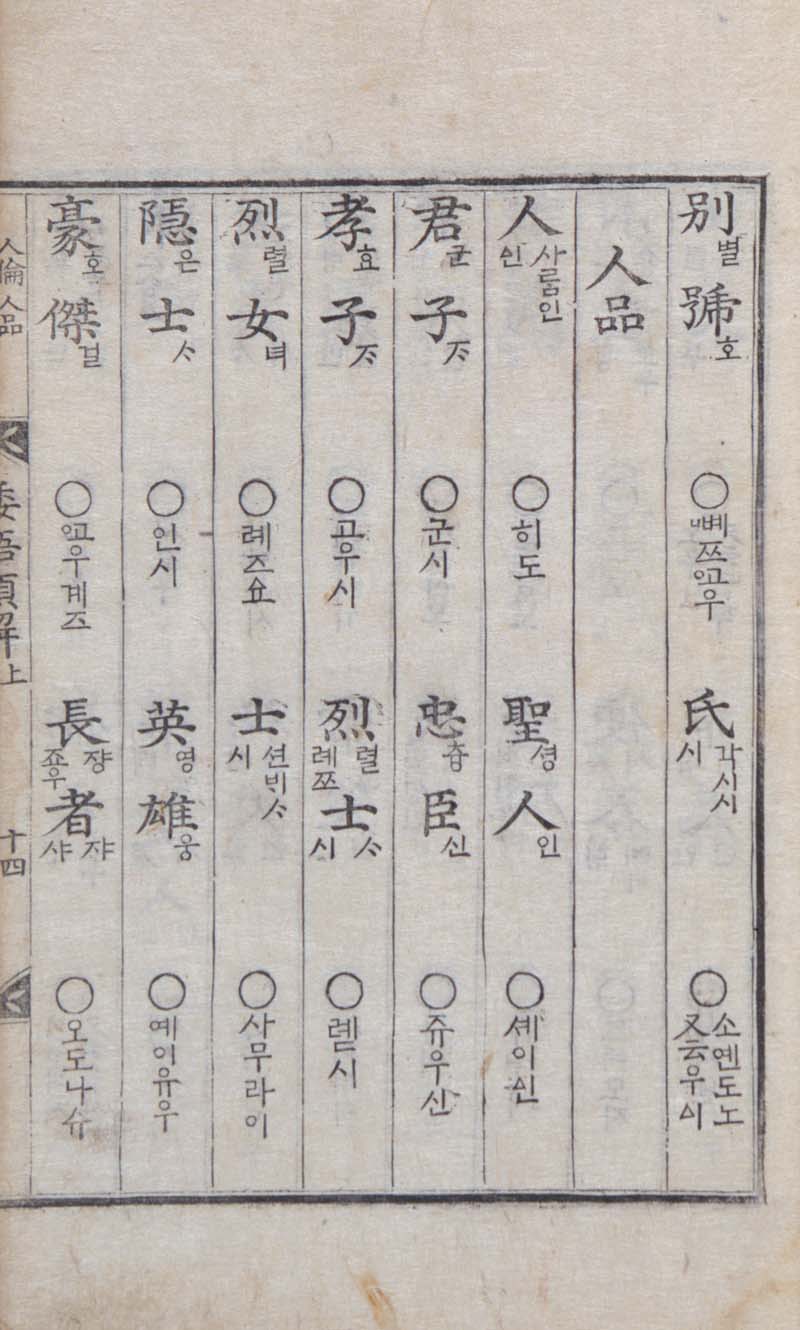 別별號호 ○쯔ᅌᅩ우 氏각시시 시 ○소옌도노 又云우시
人品
人사ᄅᆞᆷ인 인 ○히도 聖셩人인 ○셰이신
君군子ᄌᆞ ○군시 忠츙臣신 ○쥬우신
孝효子ᄌᆞ ○고우시 烈렬 례쯔 士ᄉᆞ 시 ○렏시
烈렬女녀 ○례즈요 士션비ᄉᆞ 시 ○사무라이
隱은士ᄉᆞ ○인시 英영雄웅 ○예이유우
豪호傑걸 ○ᅌᅩ우계즈 長쟝 죠우 者쟈 샤 ○오도나슈
人倫人品 倭語類解上 十四